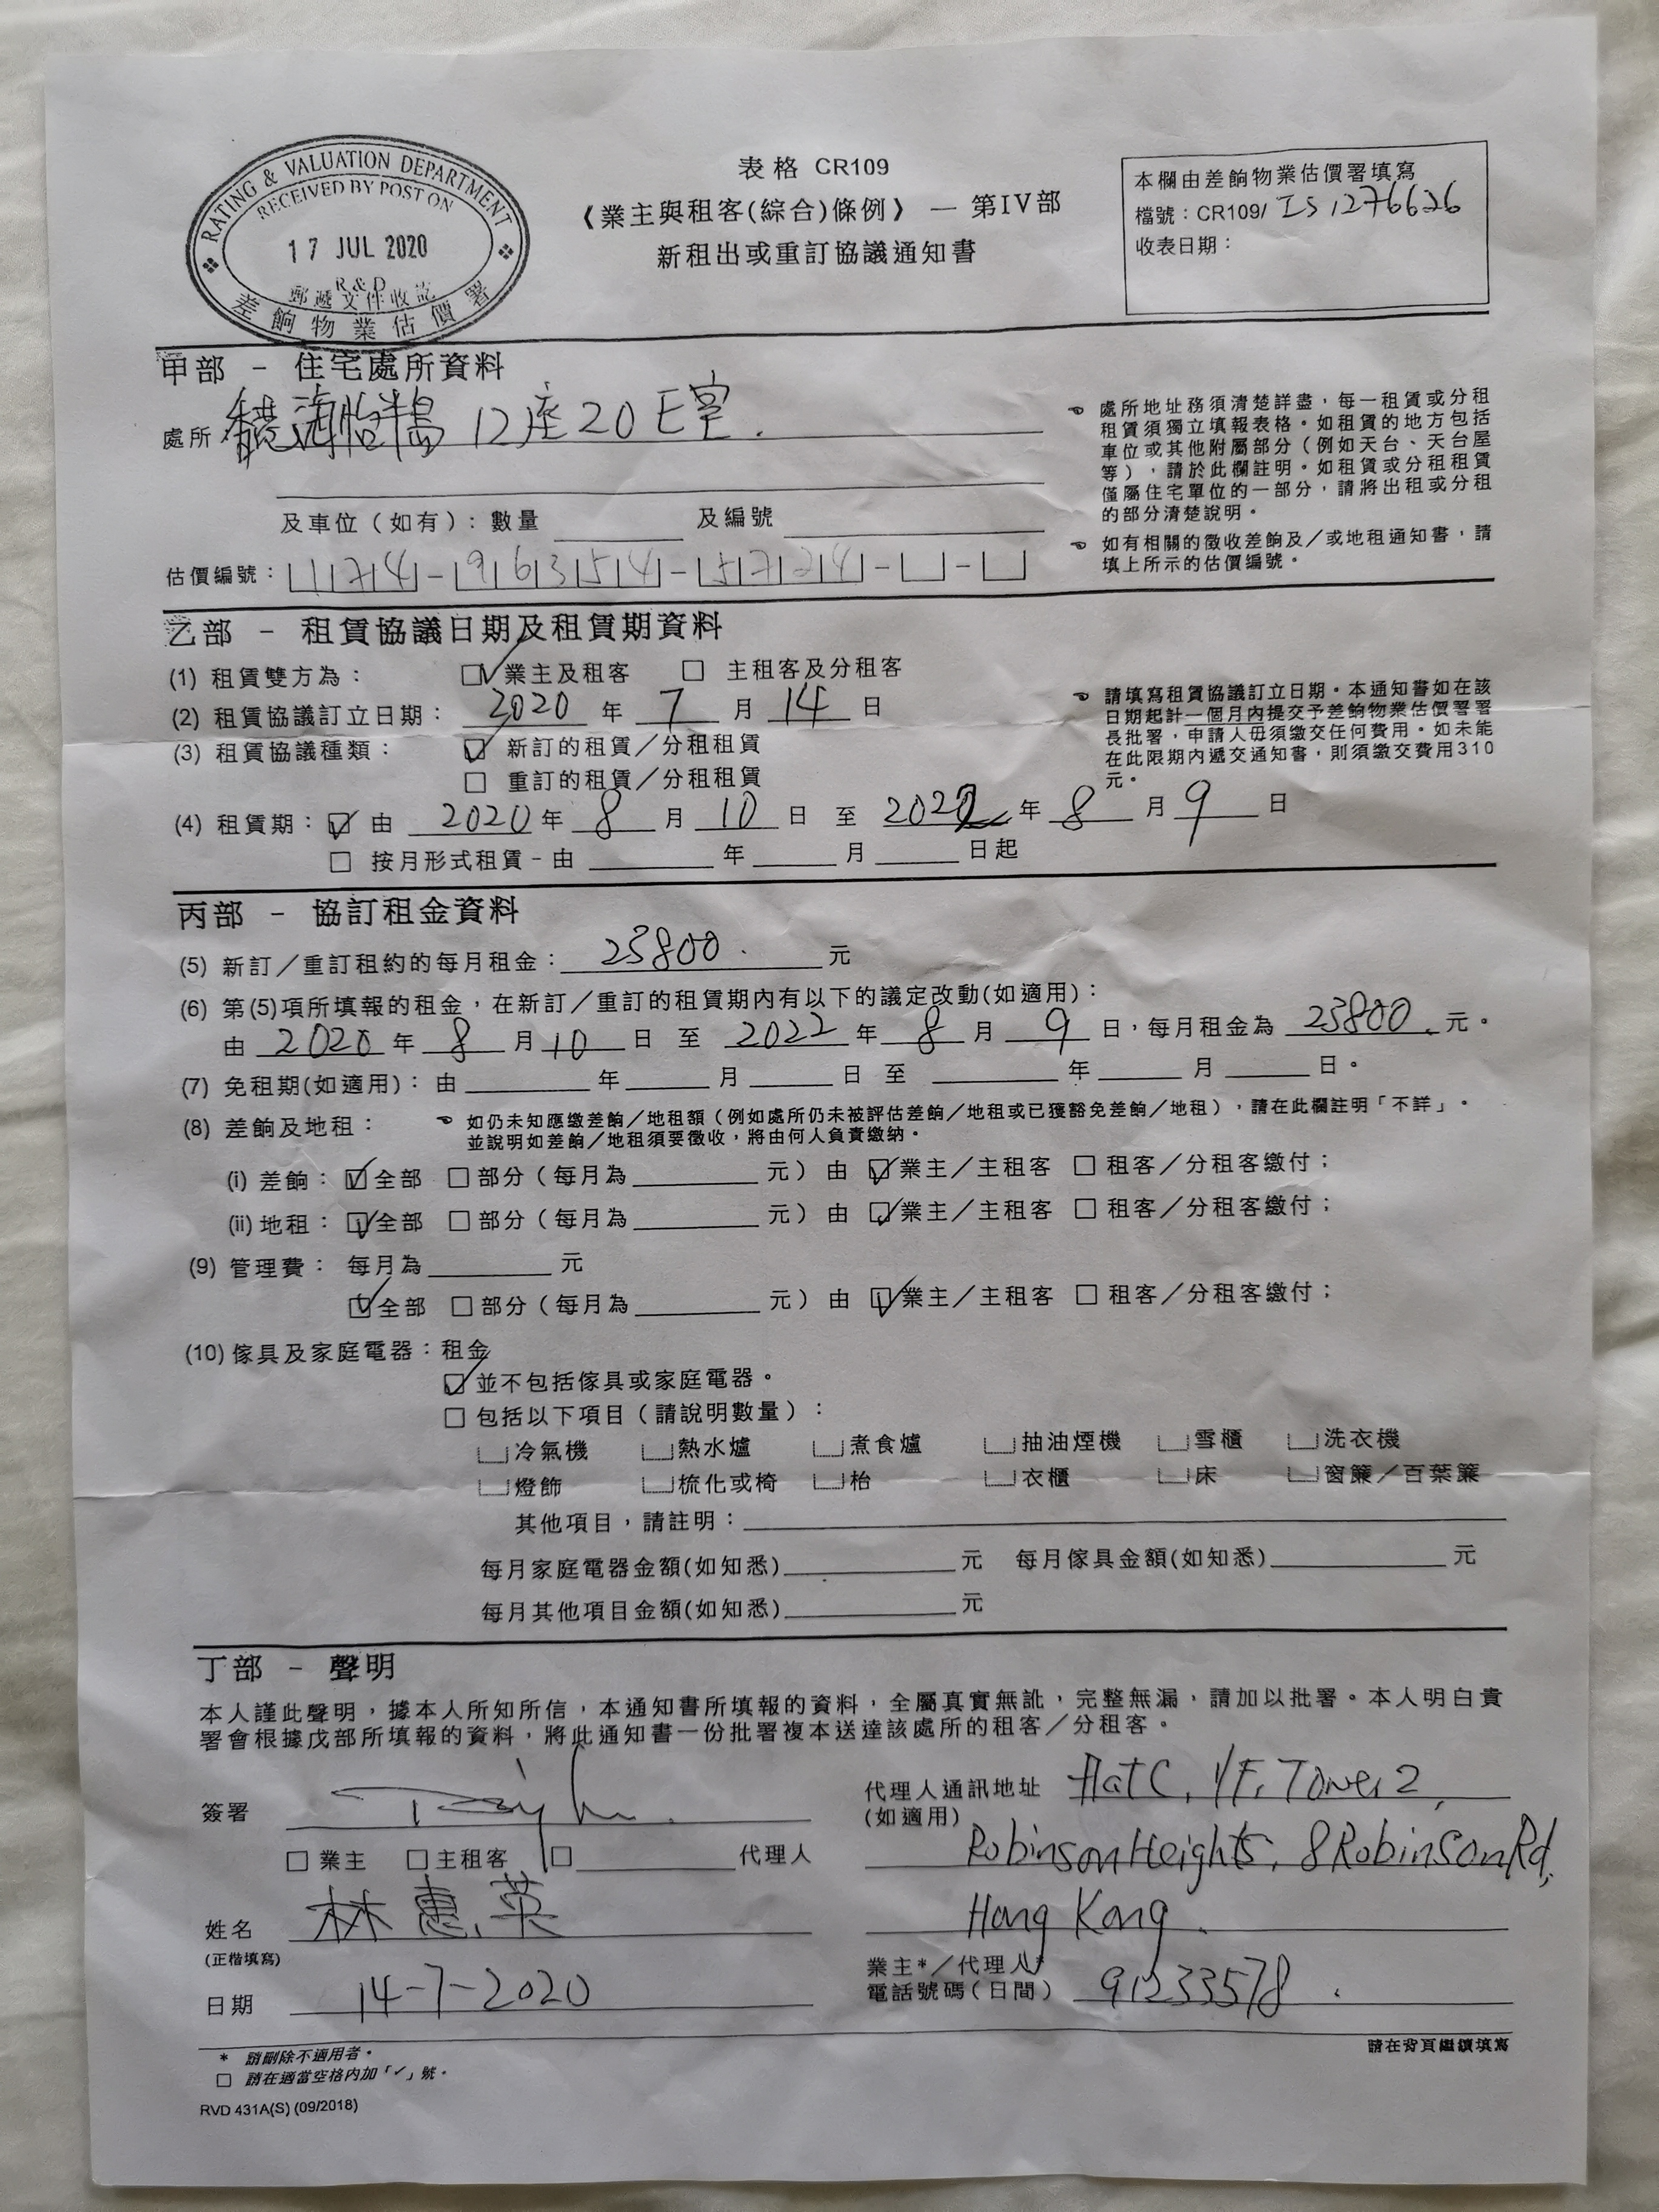 RATING & VALUATION DEPARTMENT
RECEIVED BY POST ON
17 JUL 2020
R&D
郵遞文件收訖
差餉物業估價署
表格 CR109
《業主與租客(綜合)條例》 — 第IV部
新租出或重訂協議通知書
本欄由差餉物業估價署填寫
檔號：CR109/ IS1276626
收表日期：
甲部 - 住宅處所資料
處所 香港海怡半島 12座20E室.
及車位（如有）：數量 及編號
估價編號： 174-96354-5724- -
☜ 處所地址務須清楚詳盡，每一租賃或分租
租賃須獨立填報表格。如租賃的地方包括
車位或其他附屬部分（例如天台、天台屋
等），請於此欄註明。如租賃或分租租賃
僅屬住宅單位的一部分，請將出租或分租
的部分清楚說明。
☜ 如有相關的徵收差餉及／或地租通知書，請
填上所示的估價編號。
乙部 - 租賃協議日期及租賃期資料
(1) 租賃雙方為： ☑ 業主及租客 □ 主租客及分租客
(2) 租賃協議訂立日期： 2020 年 7 月 14 日
(3) 租賃協議種類： ☑ 新訂的租賃／分租租賃
□ 重訂的租賃／分租租賃
☜ 請填寫租賃協議訂立日期。本通知書如在該
日期起計一個月內提交予差餉物業估價署署
長批署，申請人毋須繳交任何費用。如未能
在此限期內遞交通知書，則須繳交費用310
元。
(4) 租賃期：☑ 由 2020 年 8 月 10 日 至 2022 年 8 月 9 日
□ 按月形式租賃 - 由 年 月 日起
丙部 - 協訂租金資料
(5) 新訂／重訂租約的每月租金： 23800 元
(6) 第(5)項所填報的租金，在新訂／重訂的租賃期內有以下的議定改動(如適用)：
由 2020 年 8 月 10 日 至 2022 年 8 月 9 日，每月租金為 23800. 元。
(7) 免租期(如適用)：由 年 月 日 至 年 月 日。
(8) 差餉及地租： ☜ 如仍未知應繳差餉／地租額（例如處所仍未被評估差餉／地租或已獲豁免差餉／地租），請在此欄註明「不詳」。
並說明如差餉／地租須要徵收，將由何人負責繳納。
(i) 差餉： ☑全部 □部分（每月為 元） 由 ☑業主／主租客 □ 租客／分租客繳付；
(ii) 地租： ☑全部 □部分（每月為 元） 由 ☑業主／主租客 □ 租客／分租客繳付；
(9) 管理費： 每月為 元
☑全部 □部分（每月為 元） 由 ☑業主／主租客 □ 租客／分租客繳付；
(10) 傢具及家庭電器：租金
☑ 並不包括傢具或家庭電器。
□ 包括以下項目（請說明數量）：
冷氣機 熱水爐 煮食爐 抽油煙機 雪櫃 洗衣機
燈飾 梳化或椅 枱 衣櫃 床 窗簾／百葉簾
其他項目，請註明：
每月家庭電器金額(如知悉) 元 每月傢具金額(如知悉) 元
每月其他項目金額(如知悉) 元
丁部 - 聲明
本人謹此聲明，據本人所知所信，本通知書所填報的資料，全屬真實無訛，完整無漏，請加以批署。本人明白貴
署會根據戊部所填報的資料，將此通知書一份批署複本送達該處所的租客／分租客。
簽署
□ 業主 □主租客 □ 代理人
姓名 林惠英
(正楷填寫)
日期 14-7-2020
代理人通訊地址 Flat C, 1/F, Tower 2,
(如適用)
Robinson Heights, 8 Robinson Rd,
Hong Kong.
業主*／代理人*
電話號碼(日間) 91233578
* 請刪除不適用者。
□ 請在適當空格內加「✓」號。
請在背頁繼續填寫
RVD 431A(S) (09/2018)